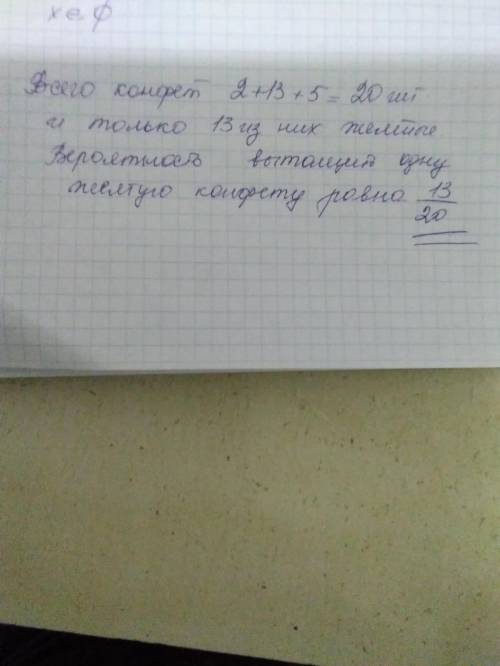 x ∈ ϕ
Всего конфет 2+13+5=20шт
и только 13 из них желтые
Вероятность вытащит одну
желтую конфету равна 13/20